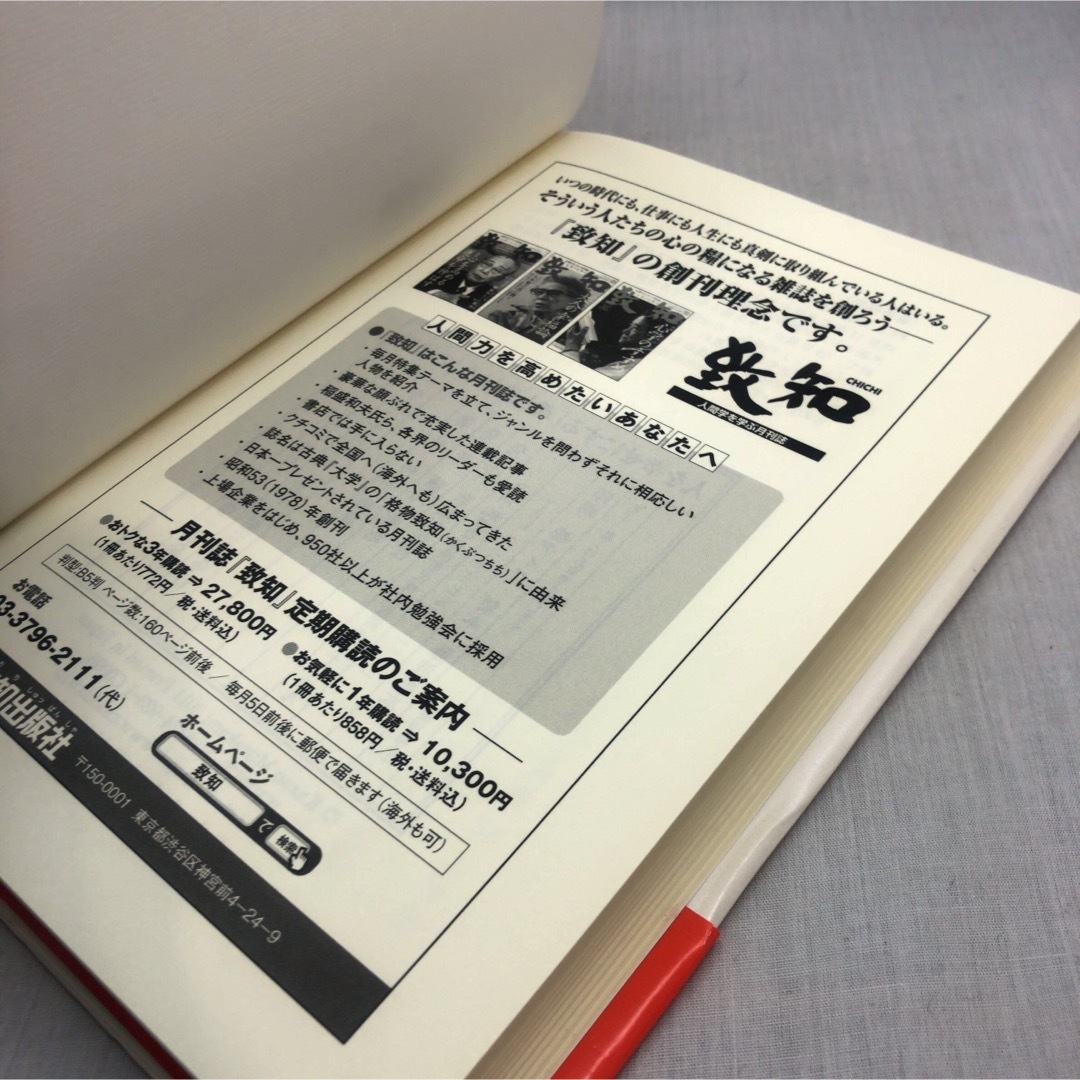 いつの時代にも、仕事にも人生にも真剣に取り組んでいる人はいる。
そういう人たちの心の糧になる雑誌を創ろう──
『致知』の創刊理念です。
致知
CHICHI
人間学を学ぶ月刊誌
人間力を高めたいあなたへ
●『致知』はこんな月刊誌です。
・毎月特集テーマを立て、ジャンルを問わずそれに相応しい
人物を紹介
・豪華な顔ぶれで充実した連載記事
・稲盛和夫氏ら、各界のリーダーも愛読
・書店では手に入らない
・クチコミで全国へ(海外へも)広まってきた
・誌名は古典『大学』の「格物致知(かくぶつちち)」に由来
・日本一プレゼントされている月刊誌
・昭和53(1978)年創刊
・上場企業をはじめ、950社以上が社内勉強会に採用
月刊誌『致知』定期購読のご案内
●おトクな3年購読 ⇒ 27,800円
(1冊あたり772円/税・送料込)
●お気軽に1年購読 ⇒ 10,300円
(1冊あたり858円/税・送料込)
判型:B5判 ページ数:160ページ前後 / 毎月5日前後に郵便で届きます(海外も可)
お電話
3-3796-2111(代)
ホームページ
致知
で
検索
知出版社
〒150-0001 東京都渋谷区神宮前4-24-9